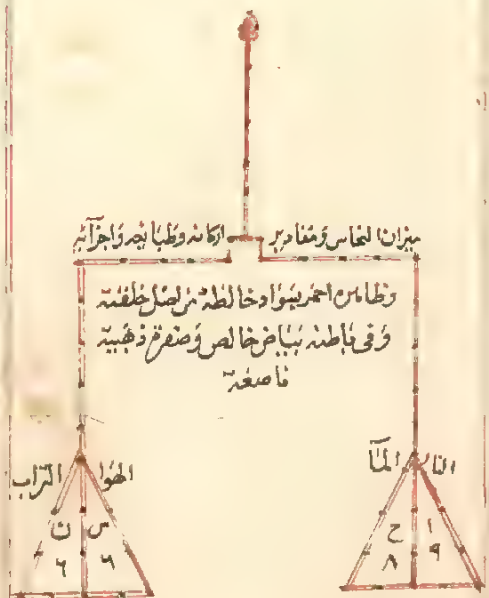 ميزان النحاس ومقادير اركانه وطبائعه واجزآئه
وظاهره احمر بسواد خالطه من اصل خلقته
وفى باطنه بياض خالص وصفرة ذهبية
ناصعة
النار المآ
الهوا التراب
ا ح
٩ ٨
س ن
٦ ٦